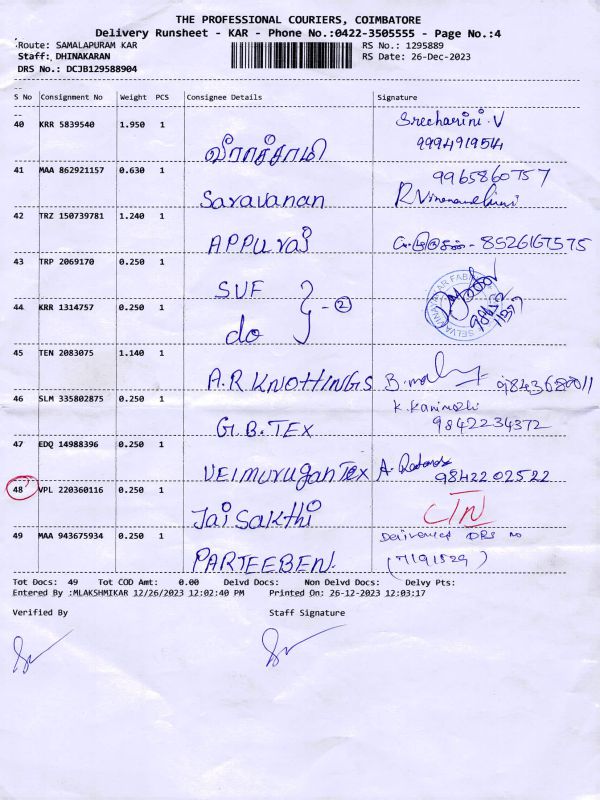 THE PROFESSIONAL COURIERS, COIMBATORE
Delivery Runsheet - KAR - Phone No.:0422-3505555 - Page No.:4
Route: SAMALAPURAM KAR RS No.: 1295889
Staff: DHINAKARAN RS Date: 26-Dec-2023
DRS No.: DCJB129588904
S No Consignment No Weight PCS Consignee Details Signature
40 KRR 5839540 1.950 1 வீராச்சாமி Srecharini.V 9994919514
41 MAA 862921157 0.630 1 Saravanan 9965860757
42 TRZ 150739781 1.240 1 APPURAJ 8526167575
43 TRP 2069170 0.250 1 SVF } - 2
44 KRR 1314757 0.250 1 do
45 TEN 2083075 1.140 1 A.R KNOTTINGS
46 SLM 335802875 0.250 1 G.B.TEX K. Kanimozhi 9842234372
47 EDQ 14988396 0.250 1 VELMURUGAN TEX 9842202522
48 VPL 220360116 0.250 1 Jai Sakthi CTN
49 MAA 943675934 0.250 1 PARTEEBEN. Delivered DRS no (7191529)
Tot Docs: 49 Tot COD Amt: 0.00 Delvd Docs: Non Delvd Docs: Delvy Pts:
Entered By :MLAKSHMIKAR 12/26/2023 12:02:40 PM Printed On: 26-12-2023 12:03:17
Verified By Staff Signature